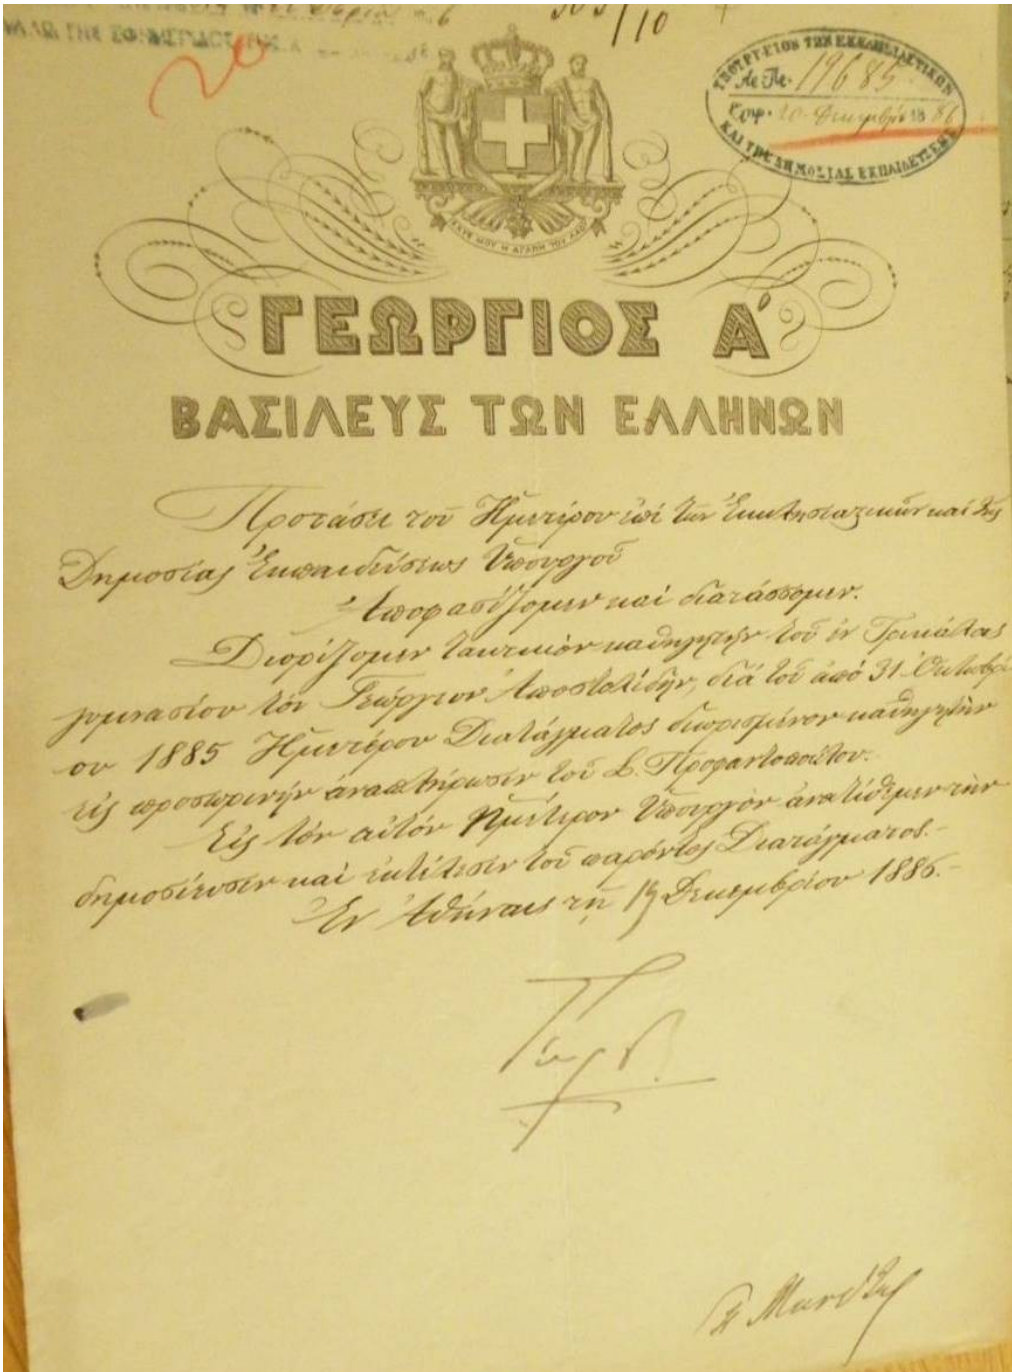 303/10
20
ΥΠΟΥΡΓΕΙΟΝ ΤΩΝ ΕΚΚΛΗΣΙΑΣΤΙΚΩΝ
Αρ. Πρ. 19685
20 Δεκεμβρίου 1886
ΚΑΙ ΤΗΣ ΔΗΜΟΣΙΑΣ ΕΚΠΑΙΔΕΥΣΕΩΣ
ΙΣΧΥΣ ΜΟΥ Η ΑΓΑΠΗ ΤΟΥ ΛΑΟΥ
ΓΕΩΡΓΙΟΣ Α'
ΒΑΣΙΛΕΥΣ ΤΩΝ ΕΛΛΗΝΩΝ
Προτάσει τοῦ Ἡμετέρου ἐπὶ τῶν Ἐκκλησιαστικῶν καὶ τῆς
Δημοσίας Ἐκπαιδεύσεως Ὑπουργοῦ
Ἀποφασίζομεν καὶ διατάσσομεν.
Διορίζομεν τακτικὸν καθηγητὴν τοῦ ἐν Τρικάλοις
γυμνασίου τὸν Γεώργιον Ἀποστολίδην, διὰ τοῦ ἀπὸ 31 Ὀκτωβρί-
ου 1885 Ἡμετέρου Διατάγματος διωρισμένον καθηγητὴν
εἰς προσωρινὴν ἀναπλήρωσιν τοῦ
Εἰς τὸν αὐτὸν Ἡμέτερον Ὑπουργὸν ἀνατίθεμεν τὴν
δημοσίευσιν καὶ ἐκτέλεσιν τοῦ παρόντος Διατάγματος.-
Ἐν Ἀθήναις τῇ 19 Δεκεμβρίου 1886.-